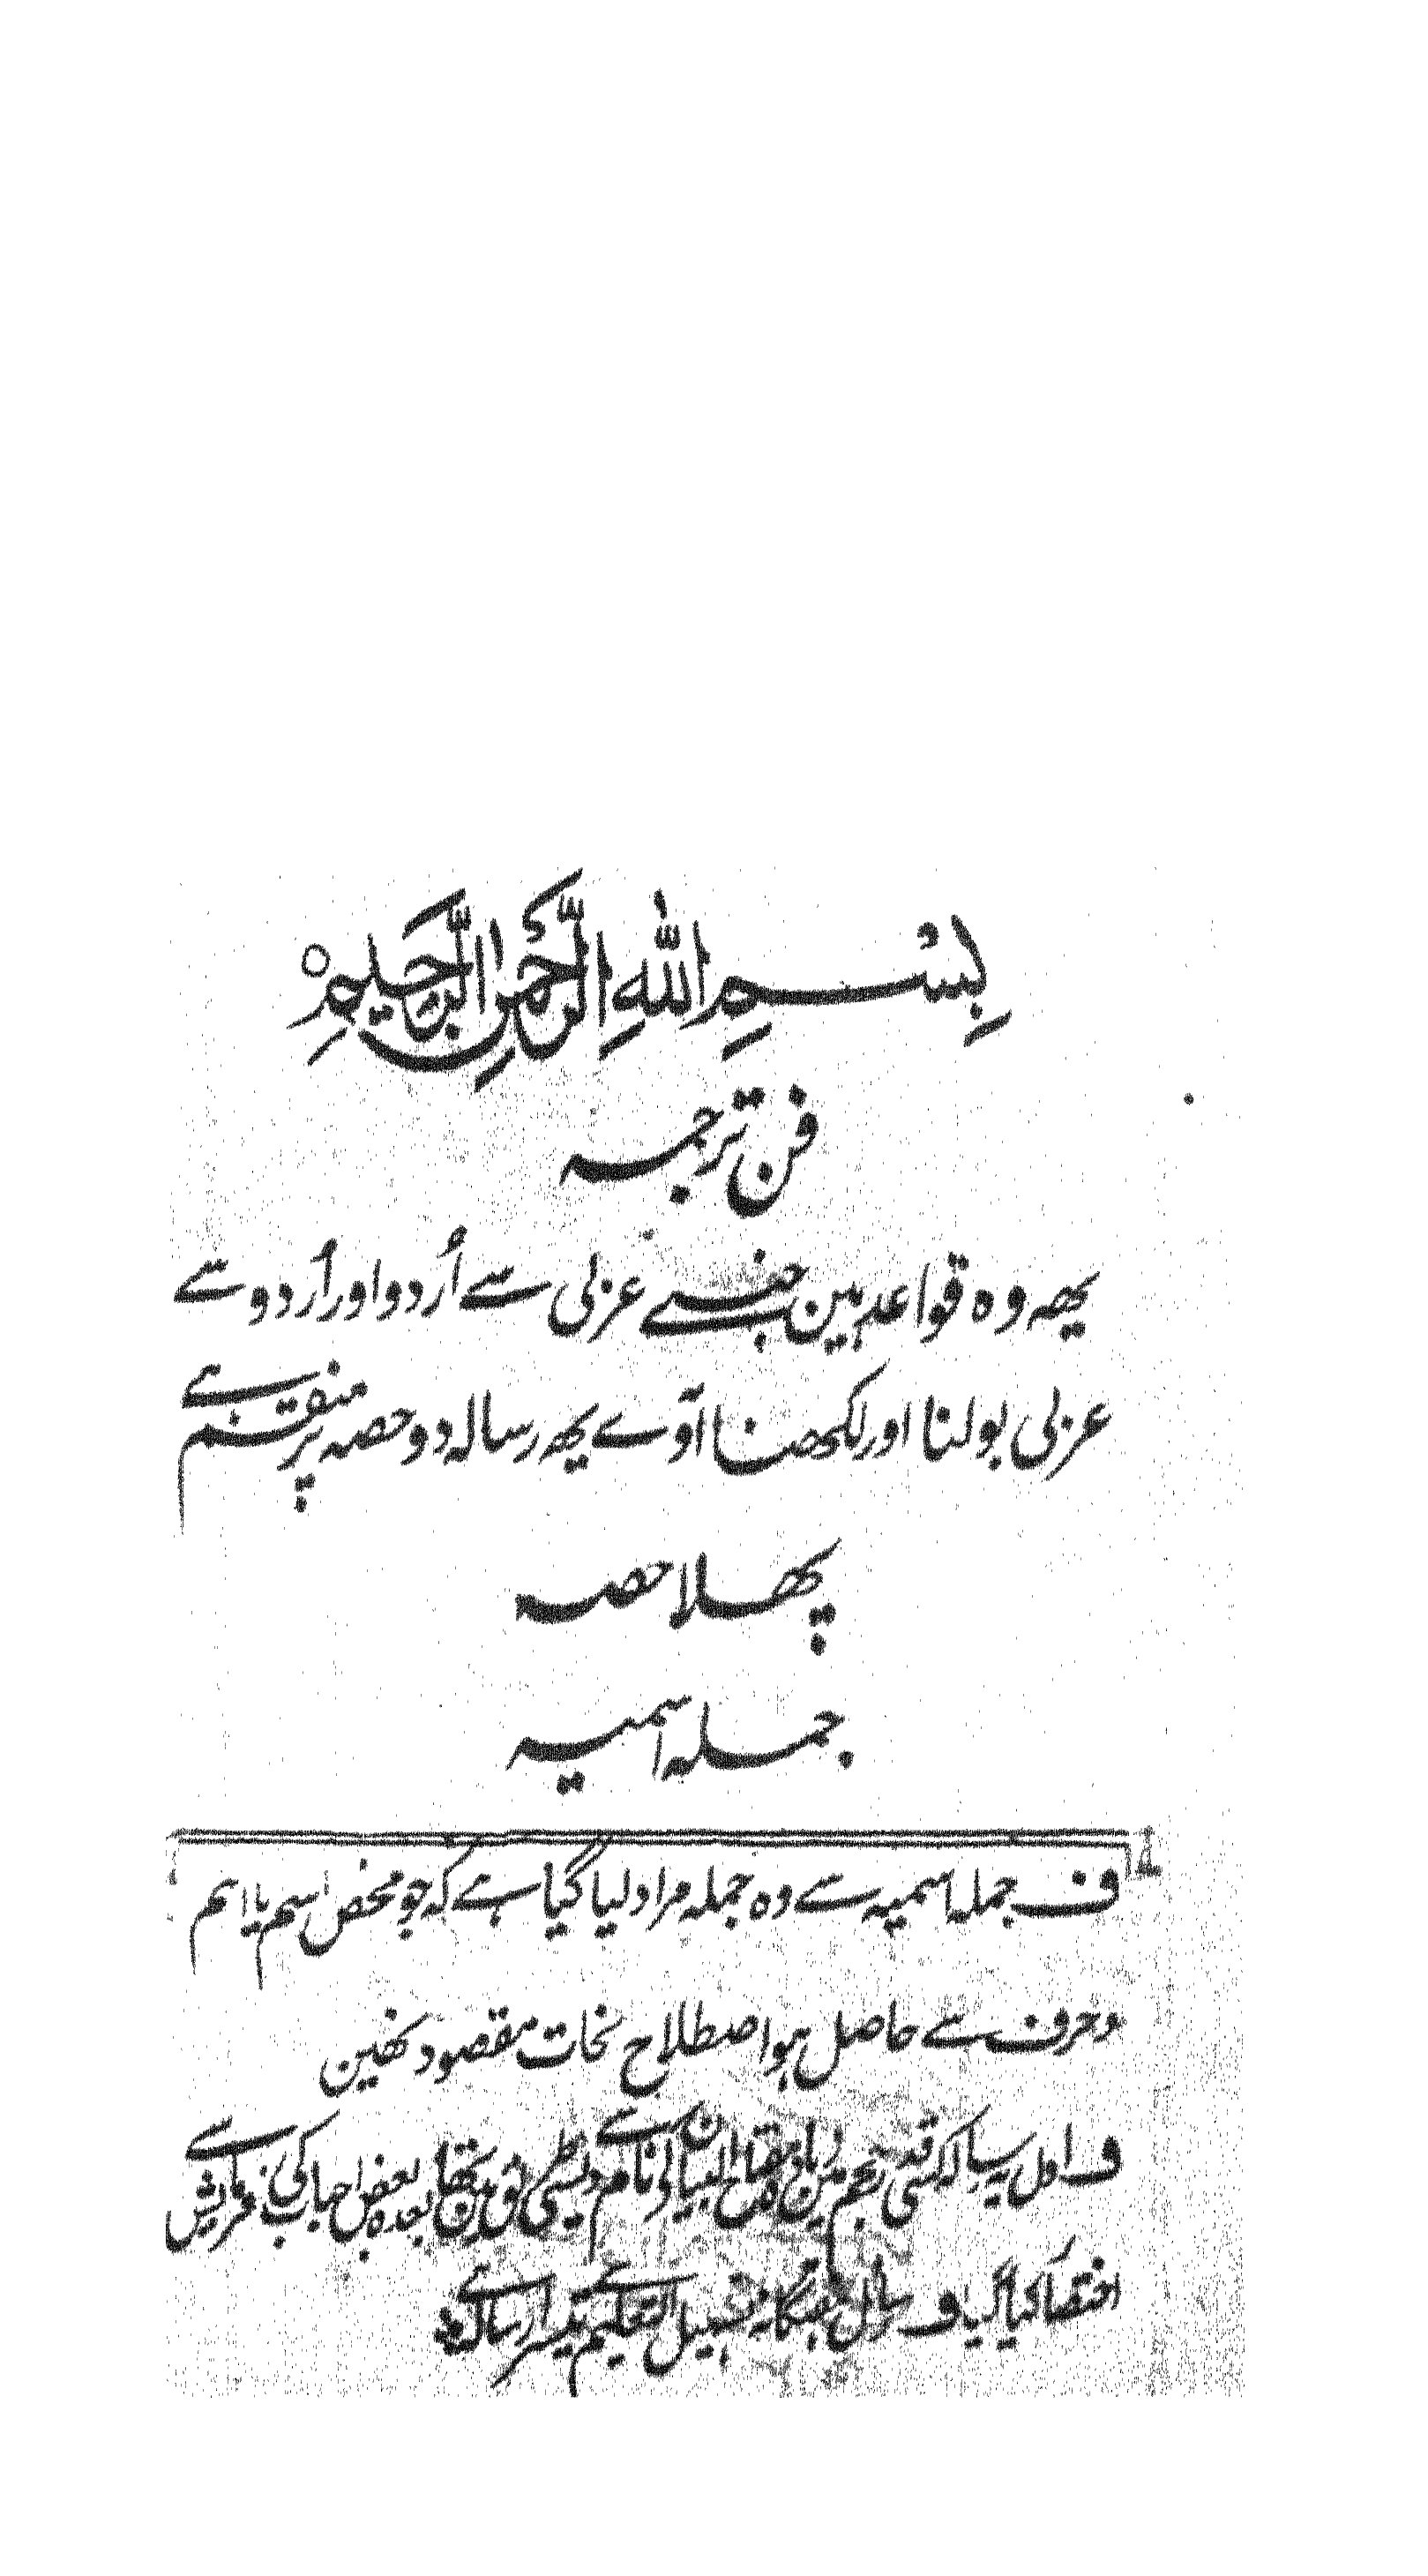 بِسْمِ اللهِ الرَّحْمٰنِ الرَّحِيْمِ
فن ترجمہ
یھہ وہ قواعد ہین جنسے عربی سے اُردو اور اُردو سے
عربی بولنا اور لکھنا آوے یھہ رسالہ دو حصہ پر منقسم ہے
پھلا حصہ
جملہ اسمیہ
ف جملہ اسمیہ سے وہ جملہ مراد لیا گیا ہے کہ جو محض اسم یا اسم
وحرف سے حاصل ہو اصطلاح نحات مقصود نھین
ف اول یہ رسالہ کسی قدر حجم مین زیادہ مفتاح البیان کے نام سے بعدہ بعض احباب کی فرمایش سے
اختصار کیا گیا ف رسائل تسہیل التعلیم رسالہ ہے